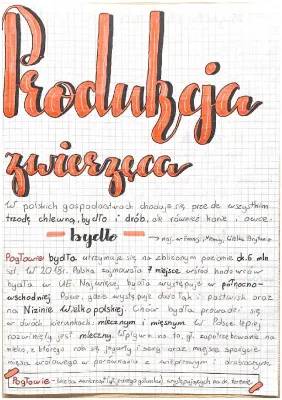 Produkcja
zwierzęca
W polskich gospodarstwach hoduje się przede wszystkim
trzodę chlewną, bydło i drób, ale również konie i owce.
bydło → naj. w Francji, Niemcy, Wielka Brytania
Pogłowie bydła utrzymuje się na zbliżonym poziomie ok. 6 mln
szt. W 2018r. Polska zajmowała 7 miejsce wśród hodowców
bydła w UE. Najwięcej bydła występuje w północno-
wschodniej Polsce, gdzie występuje dużo łąk i pastwisk oraz
na Nizinie Wielkopolskiej. Chów bydła prowadzi się
w dwóch kierunkach: mlecznym i mięsnym. W Polsce lepiej
rozwinięty jest mleczny. Wpływa na to, gł. zapotrzebowanie na
mleko, z którego robi się jogurty i sery oraz mniejsze spożycie
mięsa wołowego w porównaniu z wieprzowym i drobiowym.
Pogłowie - liczba zwierząt gospodarskich, występujących na terenie